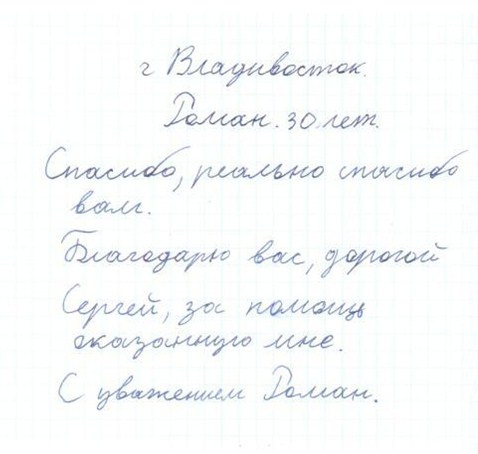 г Владивосток.
Роман. 30 лет.
Спасибо, реально спасибо
вам.
Благодарю вас, дорогой
Сергей, за помощь
оказанную мне.
С уважением Роман.